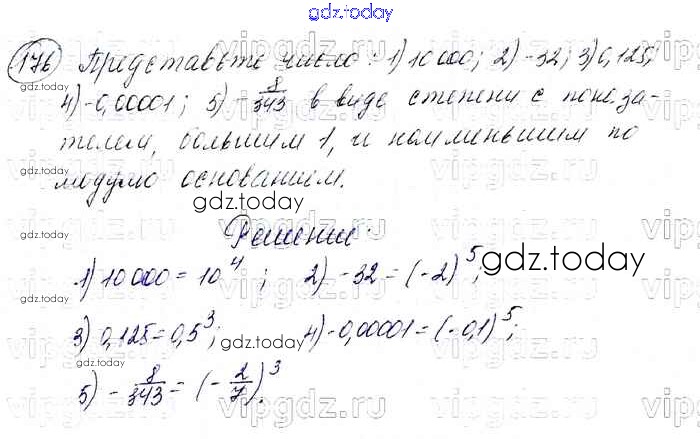 gdz.today
176 Представьте число: 1) 10 000; 2) -32; 3) 0,125;
4) -0,00001; 5) -8/343 в виде степени с показа-
телем, большим 1, и наименьшим по
модулю основанием.
gdz.today
Решение.
1) 10 000 = 10^4; 2) -32 = (-2)^5; gdz.today
3) 0,125 = 0,5^3; 4) -0,00001 = (-0,1)^5;
gdz.today
5) -8/343 = (-2/7)^3.
vipgdz.ru